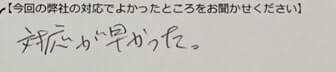 【今回の弊社の対応でよかったところをお聞かせください】
対応が早かった。